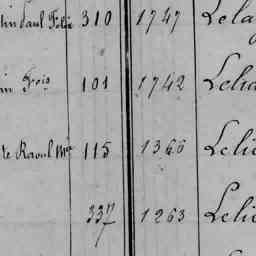 Paul Felix 310 1747 Lela
in Fois 101 1742 Lelia
te Raoul Mie 115 1366 Lelie
337 1263 Lelie